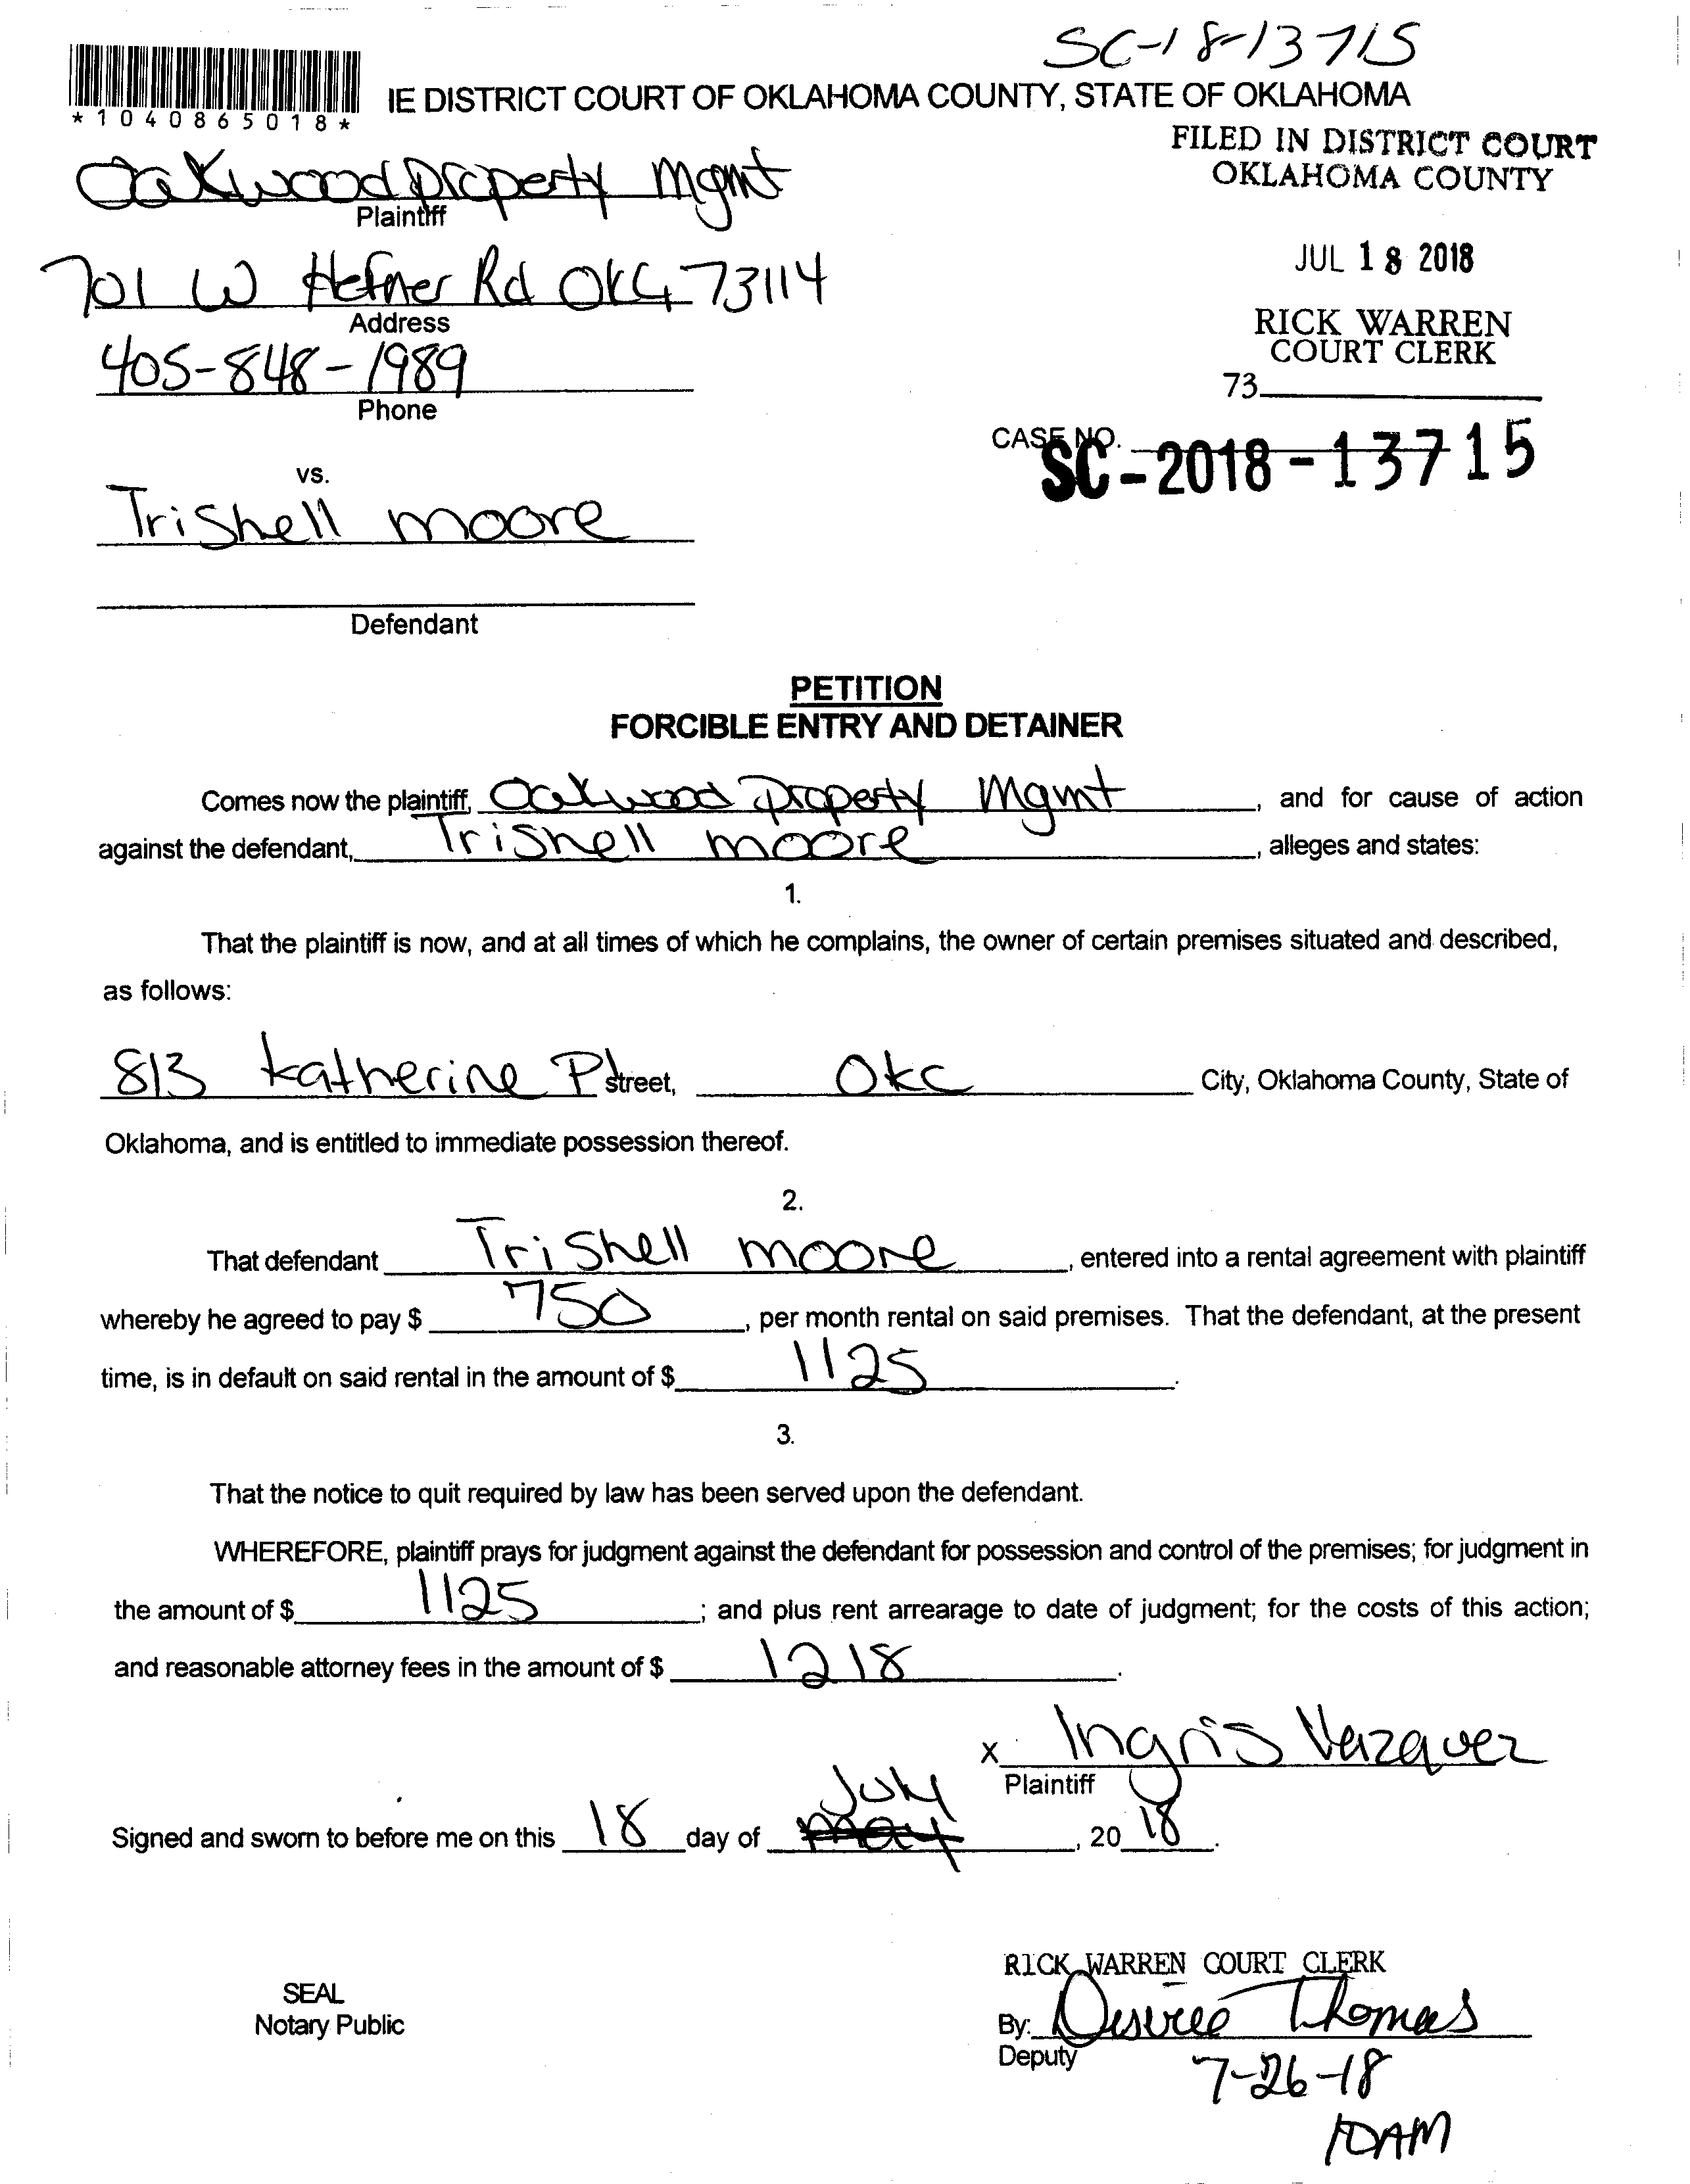 SC-18-13715
*1040865018*
IE DISTRICT COURT OF OKLAHOMA COUNTY, STATE OF OKLAHOMA
FILED IN DISTRICT COURT
OKLAHOMA COUNTY
Oakwood property Mgmt
Plaintiff
JUL 18 2018
701 W Hefner Rd OKC 73114
Address
RICK WARREN
COURT CLERK
405-848-1989
Phone
73
CASE NO.
SC-2018-13715
vs.
Trishell moore
Defendant
PETITION
FORCIBLE ENTRY AND DETAINER
Comes now the plaintiff, Oakwood property Mgmt, and for cause of action
against the defendant, Trishell moore, alleges and states:
1.
That the plaintiff is now, and at all times of which he complains, the owner of certain premises situated and described,
as follows:
813 Katherine P street, OKC City, Oklahoma County, State of
Oklahoma, and is entitled to immediate possession thereof.
2.
That defendant Trishell moore, entered into a rental agreement with plaintiff
whereby he agreed to pay $ 750, per month rental on said premises. That the defendant, at the present
time, is in default on said rental in the amount of $ 1125.
3.
That the notice to quit required by law has been served upon the defendant.
WHEREFORE, plaintiff prays for judgment against the defendant for possession and control of the premises; for judgment in
the amount of $ 1125; and plus rent arrearage to date of judgment; for the costs of this action;
and reasonable attorney fees in the amount of $ 1218.
x Ingris Vazquez
Plaintiff
July
Signed and sworn to before me on this 18 day of may, 2018.
RICK WARREN COURT CLERK
SEAL
Notary Public
By: Desiree Thomas
Deputy
7-26-18
10AM